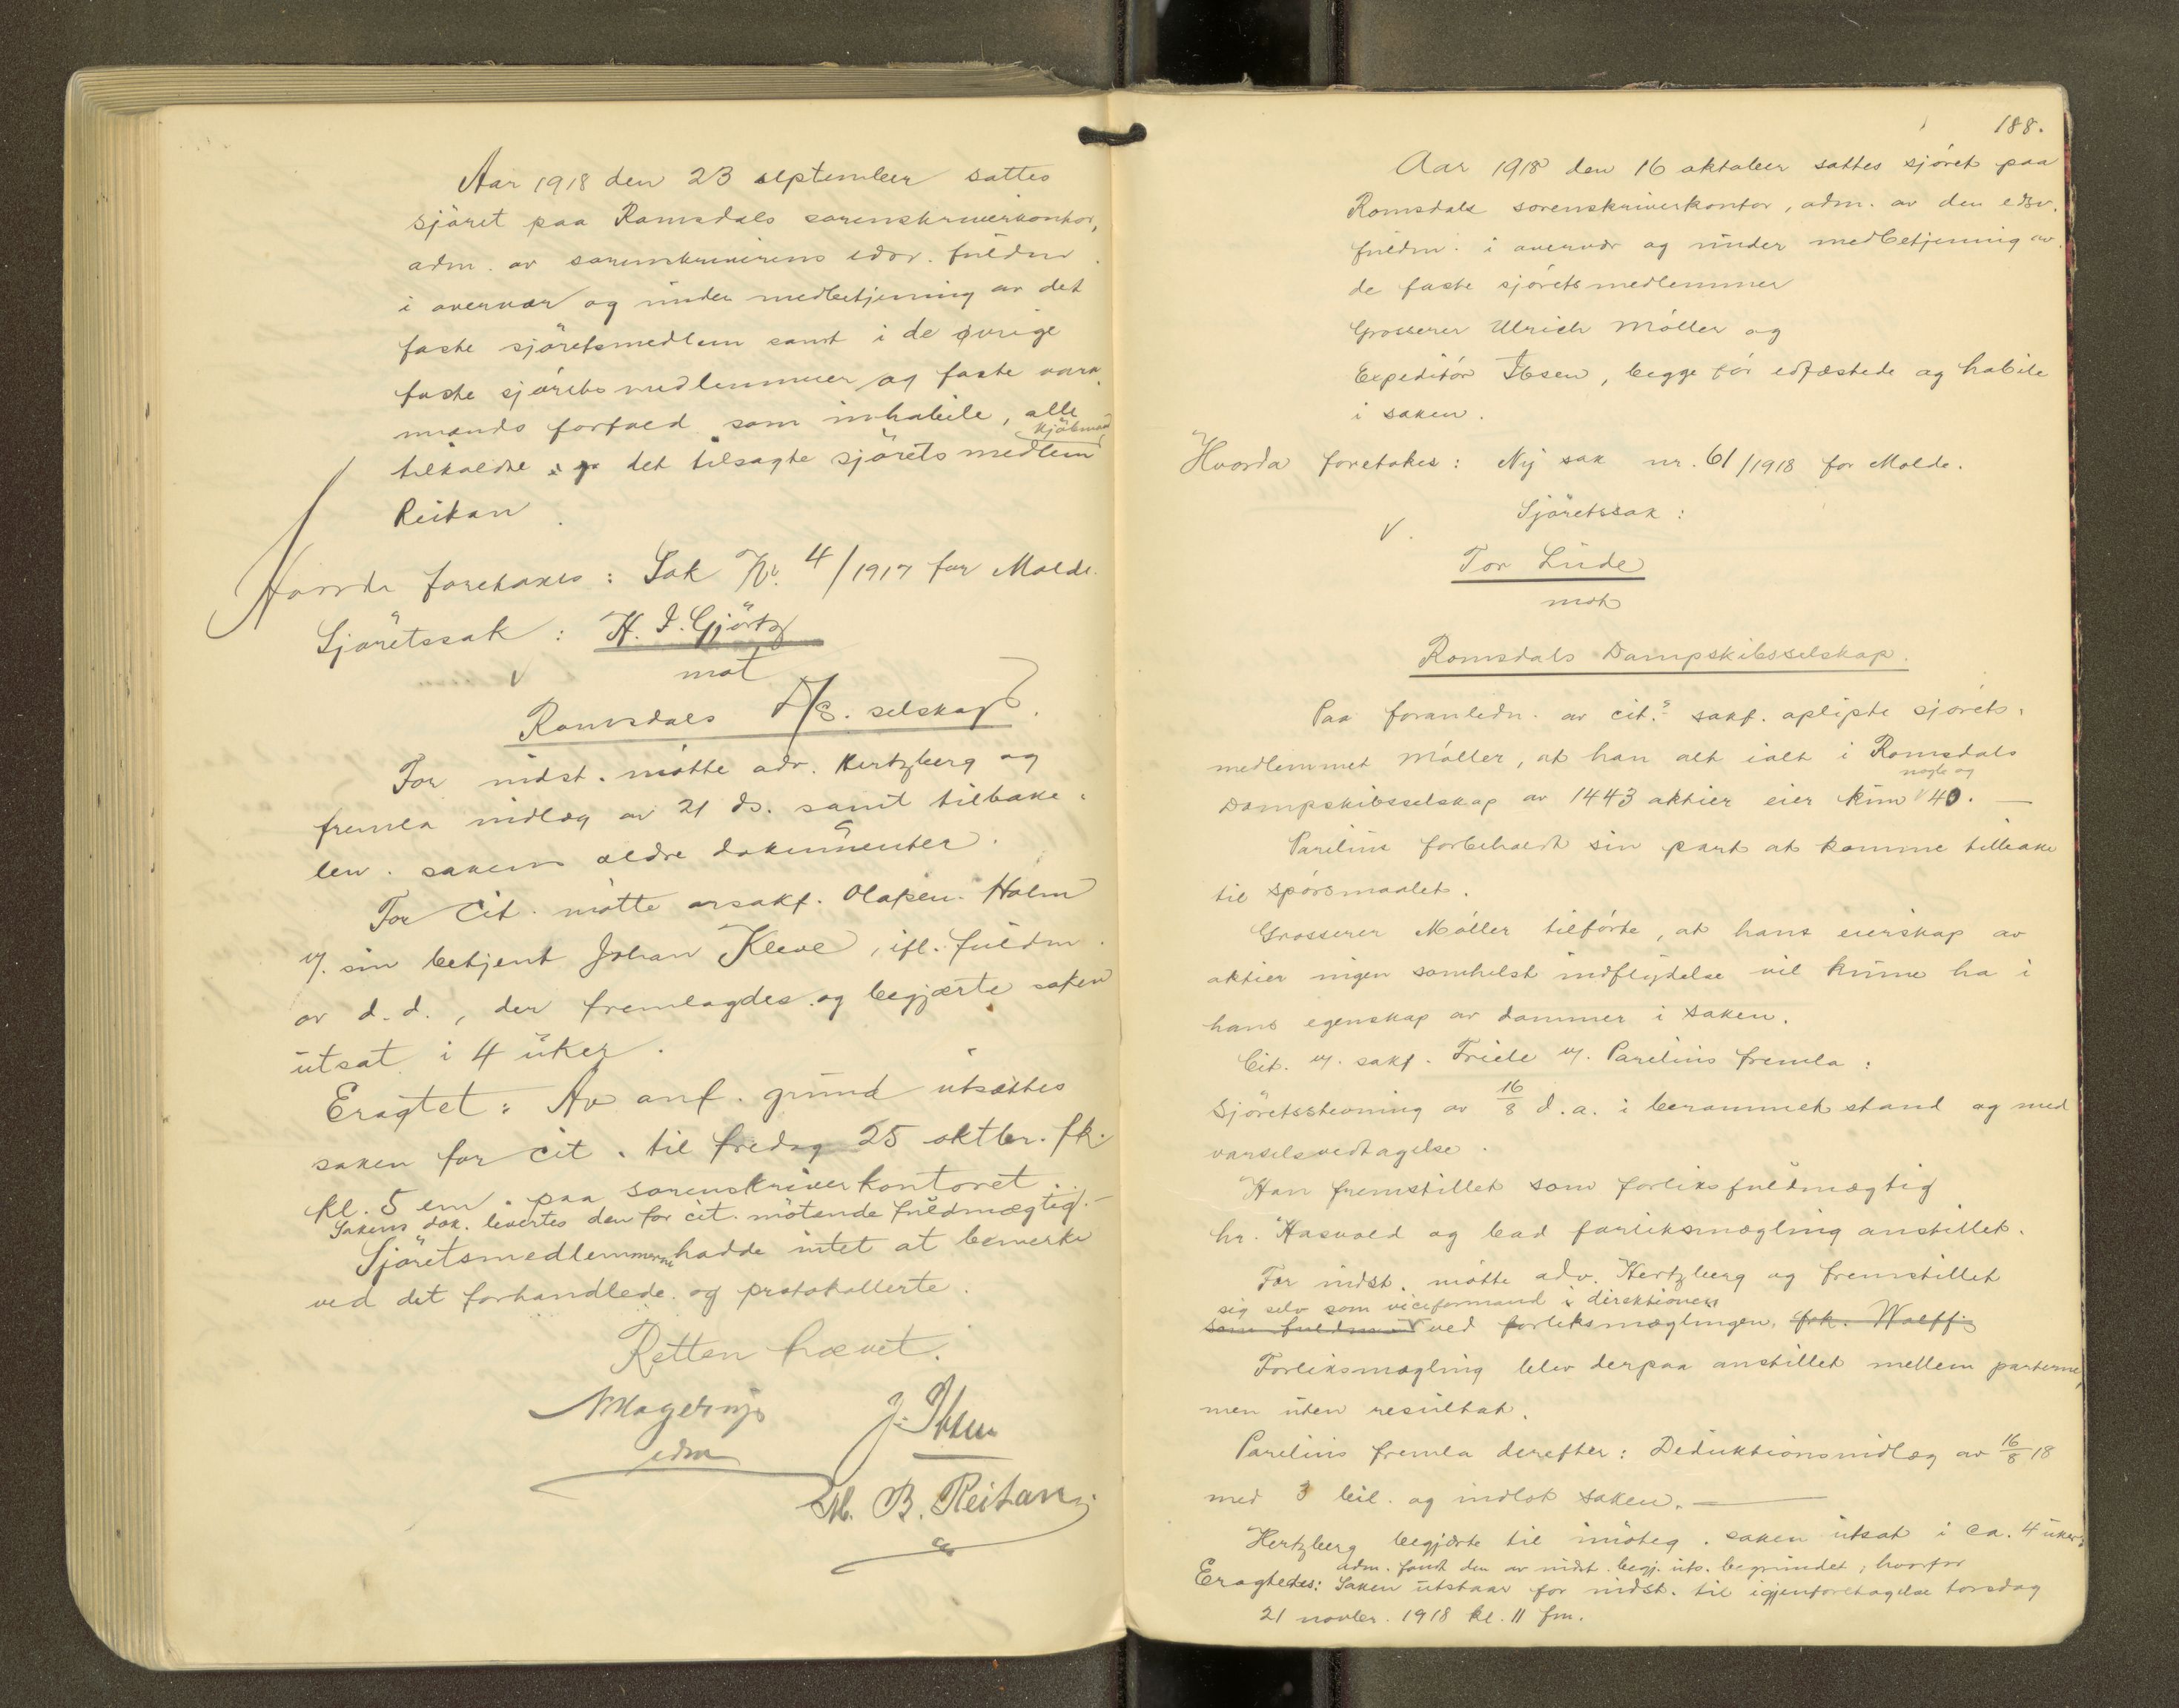 Aar 1918 den 23 september sattes
sjöret paa Romsdals sorenskriverkontor,
adm. av sorenskriverens edsv. fuldm.
i overvær og under medbetjening av det
faste sjöretsmedlem samt i de øvrige
faste sjöretsmedlemmer og faste vara-
mænds forfald som inhabile, alle
kjöbmand
tilkaldte det tilsagte sjörets medlem
Reitan.
Hvorda foretakes: Sak Nr. 4/1917 for Molde.
Sjöretssak: H. I. Gjörtz
mot
V
Romsdals D/S. selskap.
For indst. mötte adv. Hertzberg og
fremla indlæg av 21 ds. samt tilbake-
lev. sakens ældre dokumenter.
For Cit. mötte orsakf. Olafsen-Holm
v/. sin betjent Johan Kleve, ifl. fuldm.
av d.d., der fremlagdes og begjærte saken
utsat i 4 uker.
Eragtet: Av anf. grund utsættes
saken for cit. til fredag 25 oktbr. fk.
kl. 5 em. paa sorenskriverkontoret.
Sakens dok. levertes den for cit. mötende fuldmægtig.-
Sjöretsmedlemmerne hadde intet at bemerke
ved det forhandlede og protokollerte.
Retten hævet.
J. Ibsen
edsv
M. B. Reitan
188.
Aar 1918 den 16 oktober sattes sjöret paa
Romsdals sorenskriverkontor, adm. av den edsv.
fuldm. i overvær og under medbetjening av
de faste sjöretsmedlemmer
Grosserer Ulrich Möller og
Expeditör Ibsen, begge för edfæstede og habile
i saken.
Hvorda foretakes: Ny sak nr. 61/1918 for Molde.
Sjöretssak:
V.
Tor Lüde
mot
Romsdals Dampskibsselskap.
Paa foranledn. av cit.s sakf. oplyste sjörets-
medlemmet Möller, at han alt ialt i Romsdals
nogle og
Dampskibsselskap av 1443 aktier eier kun 40. —
Parelius forbeholdt sin part at komme tilbake
til spörsmaalet.
Grosserer Möller tilförte, at hans eierskap av
aktier ingen somhelst indflydelse vil kunne ha i
hans egenskap av dommer i saken.
Cit. v/. sakf. Friele v/. Parelius fremla:
Sjöretsstevning av 16/8 d.a. i berammet stand og med
varselsvedtagelse.
Han fremstillet som forliksfuldmægtig
hr. Hasvold og bad forliksmægling anstillet.
For indst. mötte adv. Hertzberg og fremstillet
sig selv som viceformand i direktionen
som fuldm ved forliksmæglingen, frk. Wolff.
Forliksmægling blev derpaa anstillet mellem parterne,
men uten resultat.
Parelius fremla derefter: Deduktionsindlæg av 16/8 18
med 3 bil. og indlot saken. —
Hertzberg begjærte til imöteg. saken utsat i ca. 4 uker.
adm. fandt den av indst. begj. uts. begrundet, hvorfor
Eragtedes: Saken utstaar for indst. til igjenforetagelse torsdag
21 novbr. 1918 kl. 11 fm.